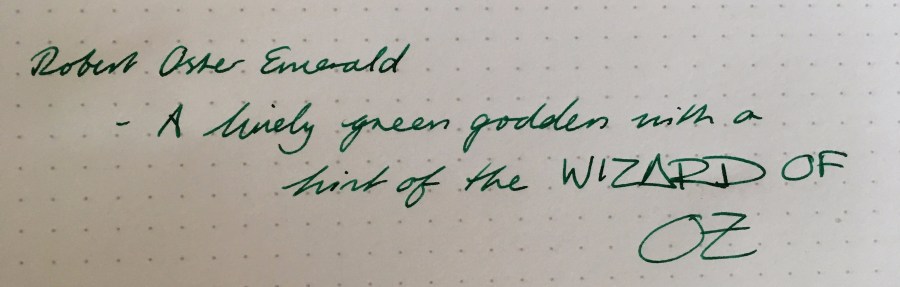 Robert Oster Emerald
- A lively green goddess with a
hint of the WIZARD OF
OZ